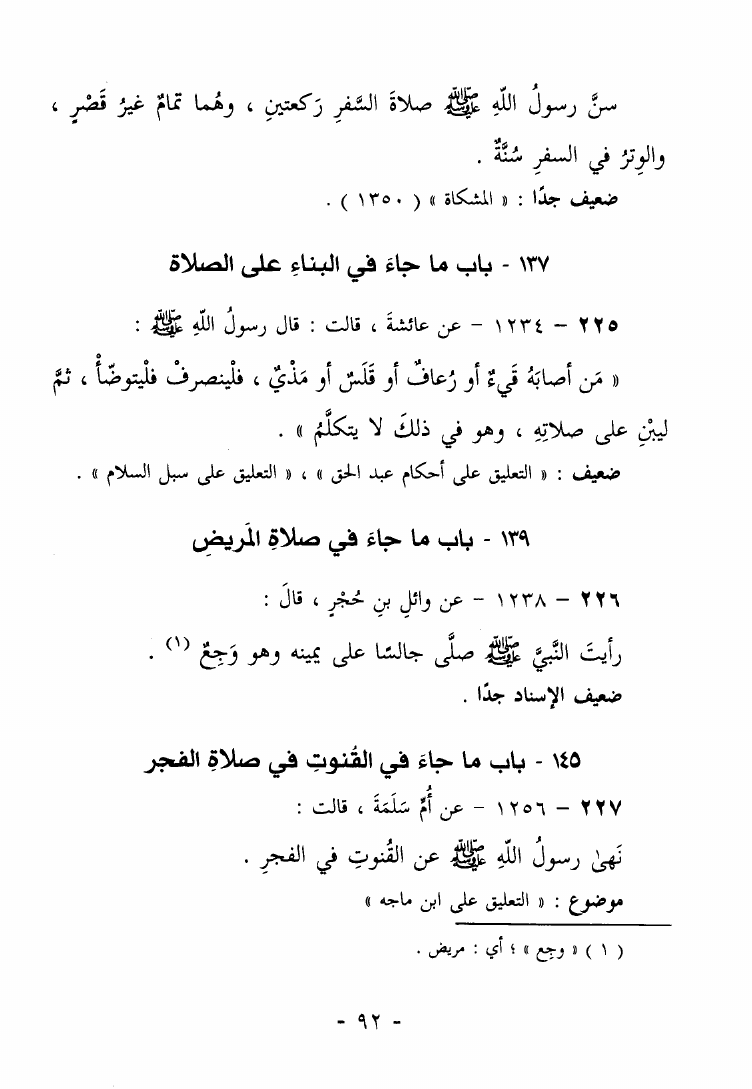 سنَّ رسولُ اللّهِ ﷺ صلاةَ السَّفرِ رَكعتينِ ، وهُما تمامٌ غيرُ قَصْرٍ ،
والوِترُ في السفرِ سُنَّةٌ .
ضعيف جدًا : « المشكاة » ( ١٣٥٠ ) .
١٣٧ - باب ما جاءَ في البناءِ على الصلاة
٢٢٥ – ١٢٣٤ – عن عائشةَ ، قالت : قال رسولُ اللّهِ ﷺ :
« مَن أصابَهُ قَيءٌ أو رُعافٌ أو قَلَسٌ أو مَذْيٌ ، فلْينصرفْ فلْيتوضّأْ ، ثمَّ
ليبْنِ على صلاتِهِ ، وهو في ذلكَ لا يتكلَّمُ » .
ضعيف : « التعليق على أحكام عبد الحق » ، « التعليق على سبل السلام » .
١٣٩ - باب ما جاءَ في صلاةِ المَريضِ
٢٢٦ – ١٢٣٨ – عن وائلِ بنِ حُجْرٍ ، قالَ :
رأيتَ النَّبيَّ ﷺ صلَّى جالسًا على يمينه وهو وَجِعٌ (١) .
ضعيف الإسناد جدًا .
١٤٥ - باب ما جاءَ في القُنوتِ في صلاةِ الفجر
٢٢٧ – ١٢٥٦ – عن أُمِّ سَلَمَةَ ، قالت :
نَهىٰ رسولُ اللّهِ ﷺ عن القُنوتِ في الفجرِ .
موضوع : « التعليق على ابن ماجه »
( ١ ) « وجِع » ؛ أي : مريض .
- ٩٢ -